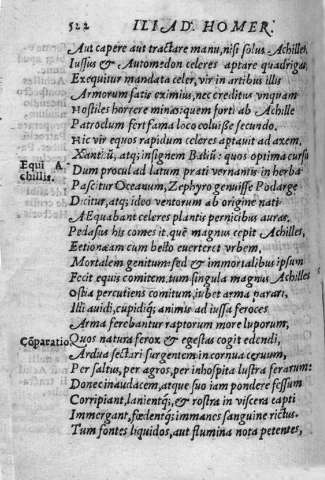 522 ILIAD. HOMER.
Aut capere aut tractare manu, nisi solus Achilles
Iussus & Automedon celeres aptare quadrigas,
Exequitur mandata celer, vir in artibus illis
Armorum satis eximius, nec creditus vnquam
Hostiles horrere minas: quem forti ab Achille
Patroclum fert fama loco coluisse secundo.
Hic vir equos rapidum celeres aptauit ad axem,
Xantũ, atq; insignem Baliũ: quos optima cursu
Equi A-
chillis.
Dum procul ad latum prati vernantis in herba
Pascitur Oceanum, Zephyro genuisse Podarge
Dicitur, atq; ideo ventorum ab origine nati
AEquabant celeres plantis pernicibus auras,
Pedasus his comes it, quẽ magnus cepit Achilles,
Eetionæam cum bello euerteret vrbem,
Mortalem genitum: sed & immortalibus ipsum
Fecit equis comitem, tum singula magnus Achilles
Ostia percutiens comitum, iubet arma parari,
Illi auidi, cupidiq; animis ad iussa feroces
Arma ferebantur raptorum more luporum,
Cõparatio
Quos natura ferox & egestas cogit edendi,
Ardua sectari surgentem in cornua ceruum,
Per saltus, per agros, per inhospita lustra ferarum:
Donec inaudacem, atque suo iam pondere fessum
Corripiant, lanientq;, & rostra in viscera capti
Immergant, fœdentq; immanes sanguine rictus.
Tum fontes liquidos, aut flumina nota petentes,